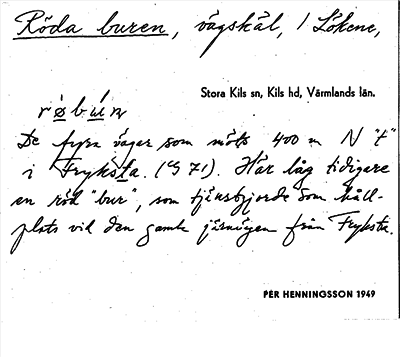 Röda buren, vägskäl, i Lökene,
Stora Kils sn, Kils hd, Värmlands län.
De fyra vägar som möts 400 m N "t"
i Fryksta. (G 71). Här låg tidigare
en röd "bur", som tjänstgjorde som håll-
plats vid den gamla järnvägen från Fryksta.
PER HENNINGSSON 1949